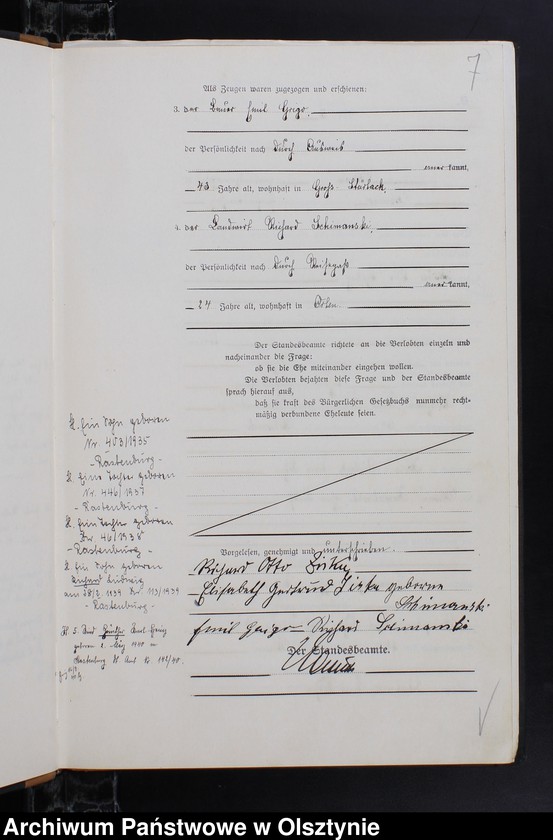 7
Als Zeugen waren zugezogen und erschienen:
3. der Bauer Emil Grigo,
der Persönlichkeit nach durch Ausweis
kannt,
43 Jahre alt, wohnhaft in Groß Stürlack,
4. der Landwirt Richard Schimanski,
der Persönlichkeit nach durch Reisepaß
kannt,
24 Jahre alt, wohnhaft in
Der Standesbeamte richtete an die Verlobten einzeln und
nacheinander die Frage:
ob sie die Ehe miteinander eingehen wollen.
Die Verlobten bejahten diese Frage und der Standesbeamte
sprach hierauf aus,
daß sie kraft des Bürgerlichen Gesetzbuchs nunmehr recht-
mäßig verbundene Eheleute seien.
1. Ein Sohn geboren
Nr. 403/1935
- Rastenburg -
2. Eine Tochter geboren
Nr. 446/1937
- Rastenburg -
Tochter geboren
Nr. 46/1938
- Rastenburg -
Ein Sohn geboren
Ludwig
1939 Nr. 113/1939
- Rastenburg -
5. Kind
geboren 1. Mai 1940 in
Rastenburg Nr. 142/40.
Vorgelesen, genehmigt und unterschrieben.
Richard Otto
Elisabeth Gertrud geborene
Schimanski
Emil Grigo Richard Schimanski
Der Standesbeamte.
Archiwum Państwowe w Olsztynie